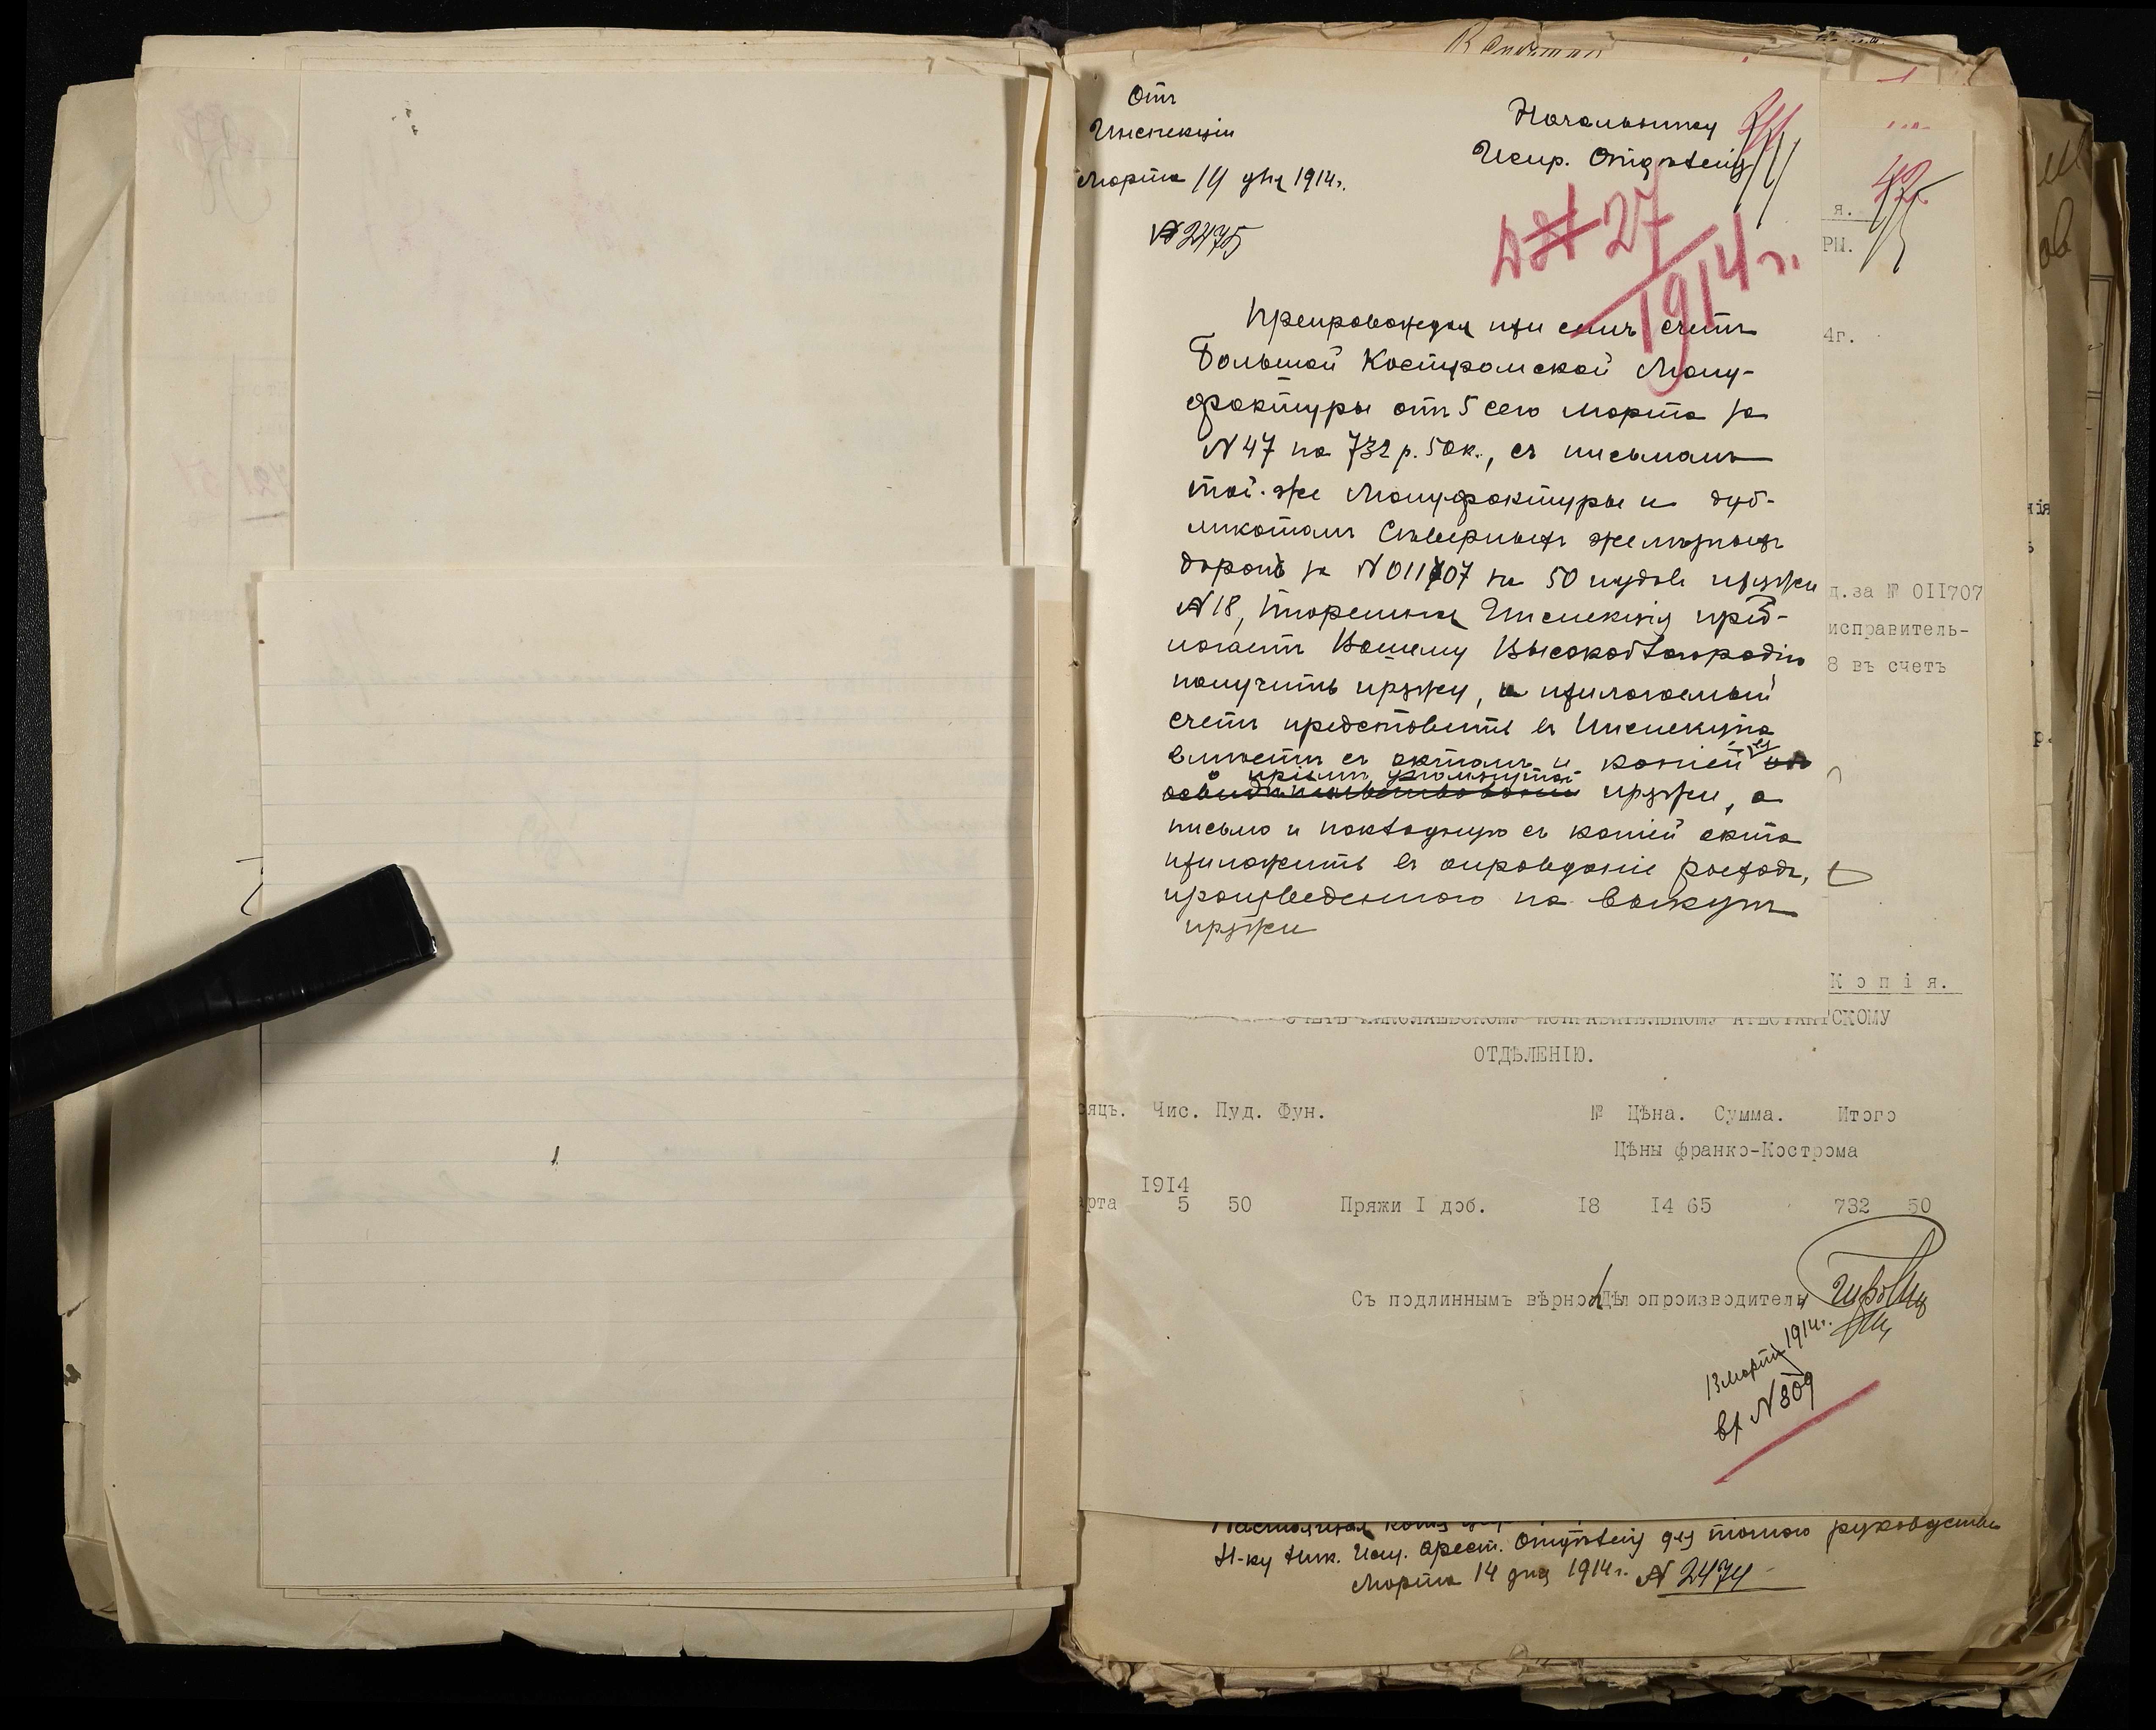 Отъ
Инспекціи
Марта 14 дня 1914г.
№ 2475
Начальнику
Испр. Отдѣленія
41
Д № 27
1914 г.
42
я.
РЫ.
4г.
Препровождая при семъ счетъ
Большой Костромской Ману-
фактуры отъ 5 сего Марта за
№ 47 на 732 р. 50к., съ письмомъ
той-же Мануфактуры и дуб-
ликатомъ Сѣверныхъ желѣзныхъ
дорогъ за № 011707 на 50 пудовъ пряжи
№ 18, Тюремная Инспекція пред-
лагаетъ Вашему Высокоблагородію
получить пряжу, а прилагаемый
счетъ представить въ Инспекцію
вмѣстѣ съ актомъ и копіей его
о пріемѣ упомянутой пряжи, а
письмо и накладную съ копіей акта
приложить въ оправданіе расхода,
произведеннаго на выкупъ
пряжи
д.за № 011707
исправитель-
8 въ счетъ
Копія.
СЧЕТЪ НИКОЛАЕВСКОМУ ИСПРАВИТЕЛЬНОМУ АРЕСТАНТСКОМУ
ОТДѢЛЕНІЮ.
сяцъ. Чис. Пуд. Фун. № Цѣна. Сумма. Итого
Цѣны франко-Кострома
1914
арта 5 50 Пряжи I доб. 18 14 65 732 50
Съ подлиннымъ вѣрно: Дѣлопроизводитель
13 Марта 1914г.
вх № 809
Настоящая копія
Н-ку Ник. Исп. Арест. Отдѣленія для точнаго руководства
Марта 14 дня 1914г. № 2474